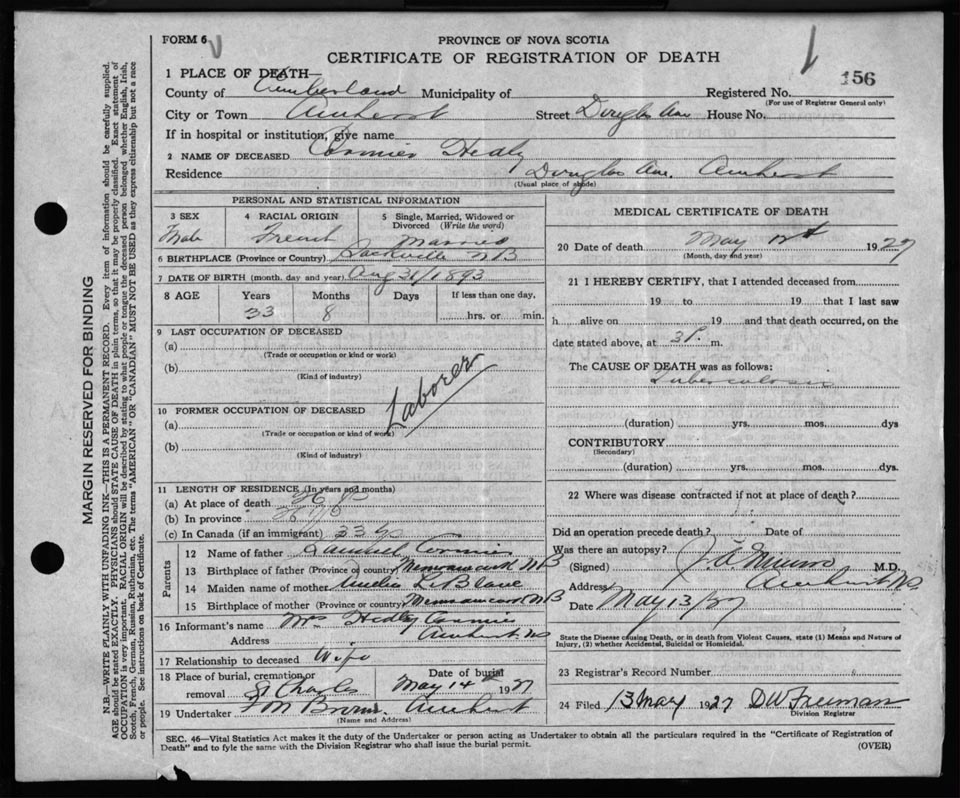 FORM 6
PROVINCE OF NOVA SCOTIA
CERTIFICATE OF REGISTRATION OF DEATH
156
1 PLACE OF DEATH—
County of Cumberland Municipality of Registered No.
(For use of Registrar General only)
City or Town Amherst Street Douglas Ave House No.
If in hospital or institution, give name
2 NAME OF DECEASED Cormier Hedley
Residence Douglas Ave. Amherst
(Usual place of abode)
PERSONAL AND STATISTICAL INFORMATION
3 SEX
4 RACIAL ORIGIN
5 Single, Married, Widowed or Divorced (Write the word)
Male French Married
6 BIRTHPLACE (Province or Country) Sackville NB
7 DATE OF BIRTH (month, day and year) Aug 31/1893
8 AGE Years Months Days If less than one day,
33 8 hrs. or min.
9 LAST OCCUPATION OF DECEASED
(a)
(Trade or occupation or kind or work)
(b)
(Kind of industry)
Laborer
10 FORMER OCCUPATION OF DECEASED
(a)
(Trade or occupation or kind of work)
(b)
(Kind of industry)
11 LENGTH OF RESIDENCE (In years and months)
(a) At place of death
(b) In province
(c) In Canada (if an immigrant) 33
Parents
12 Name of father Cormier
13 Birthplace of father (Province or country) Memramcook NB
14 Maiden name of mother Amelia LeBlanc
15 Birthplace of mother (Province or country) Memramcook NB
16 Informant's name Mrs Hedley Cormier
Address Amherst NS
17 Relationship to deceased Wife
18 Place of burial, cremation or removal St Charles
Date of burial May 14th 1927
19 Undertaker Amherst
(Name and Address)
MEDICAL CERTIFICATE OF DEATH
20 Date of death May 1927
(Month, day and year)
21 I HEREBY CERTIFY, that I attended deceased from
19 to 19 that I last saw
h alive on 19 and that death occurred, on the
date stated above, at 3 P. m.
The CAUSE OF DEATH was as follows:
Tuberculosis
(duration) yrs. mos. dys
CONTRIBUTORY
(Secondary)
(duration) yrs. mos. dys.
22 Where was disease contracted if not at place of death?
Did an operation precede death? Date of
Was there an autopsy?
(Signed) Munro M.D.
Address Amherst NS
Date May 13/27
State the Disease causing Death, or in death from Violent Causes, state (1) Means and Nature of
Injury, (2) whether Accidental, Suicidal or Homicidal.
23 Registrar's Record Number
24 Filed 13 May 1927 DW Freeman
Division Registrar
SEC. 46—Vital Statistics Act makes it the duty of the Undertaker or person acting as Undertaker to obtain all the particulars required in the "Certificate of Registration of
Death" and to fyle the same with the Division Registrar who shall issue the burial permit.
(OVER)
MARGIN RESERVED FOR BINDING
N.B.—WRITE PLAINLY WITH UNFADING INK—THIS IS A PERMANENT RECORD. Every item of information should be carefully supplied.
AGE should be stated EXACTLY. PHYSICIANS should STATE CAUSE OF DEATH in plain terms, so that it may be properly classified. Exact statement of
OCCUPATION is very important. RACIAL ORIGIN will be described by stating to what people or tongue the deceased person belonged whether English, Irish,
Scotch, French, German, Russian, Ruthenian, etc. The terms "AMERICAN" OR "CANADIAN" MUST NOT BE USED as they express citizenship but not a race
or people. See instructions on back of Certificate.